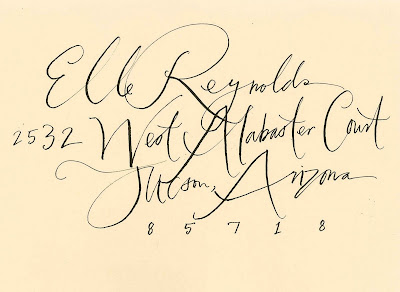 Elle Reynolds
2532 West Alabaster Court
Tucson, Arizona
8 5 7 1 8